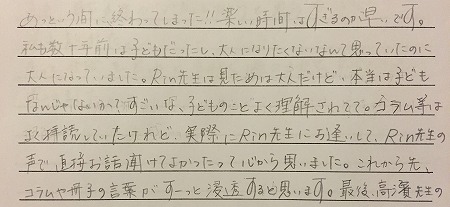 あっという間に終わってしまった!! 楽しい時間はすぎるのが早いです。
私も数十年前は子どもだったし、大人になりたくないなんて思っていたのに
大人になっていました。Rin先生は見ためは大人だけど、本当は子ども
なんじゃないかってすごいな、子どものことよく理解されてて。コラム等は
よく拝読していたけれど、実際にRin先生にお逢いして、Rin先生の
声で直接お話聞けてよかったって心から思いました。これから先、
コラムや冊子の言葉がすーっと浸透すると思います。最後、高濱先生の